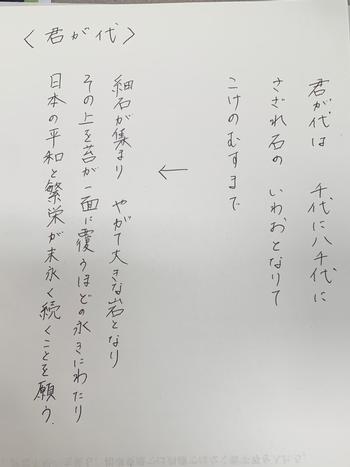 〈君が代〉
君が代は　千代に八千代に
さざれ石の　いわおとなりて
こけのむすまで
←
細石が集まり　やがて大きな岩となり
その上を苔が一面に覆うほどの永きにわたり
日本の平和と繁栄が末永く続くことを願う.